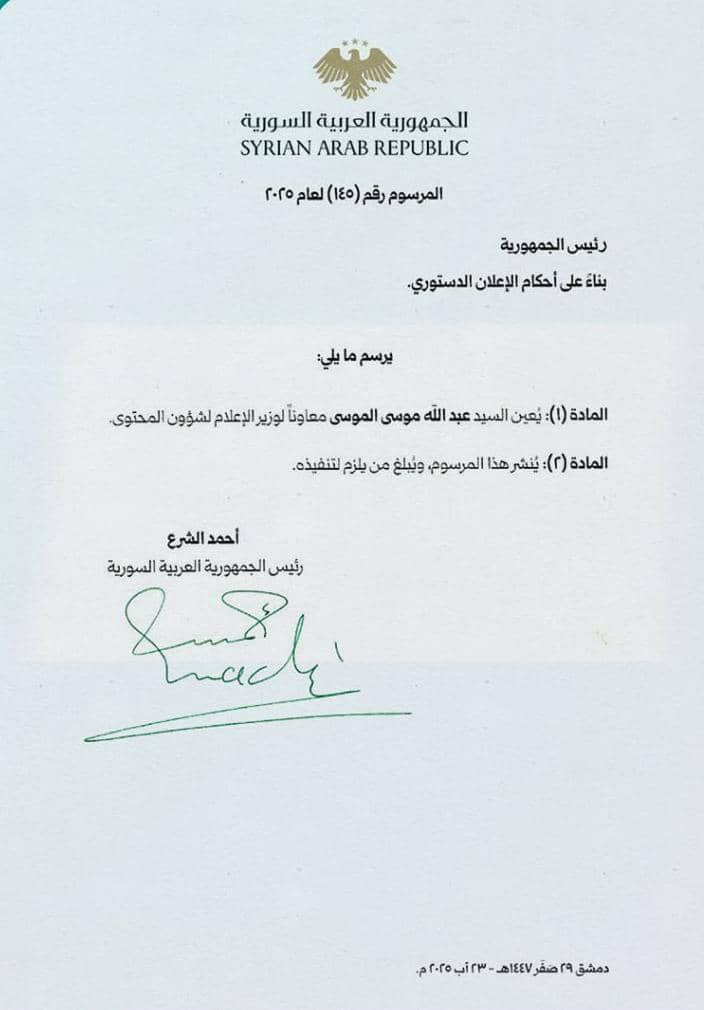 الجمهورية العربية السورية
SYRIAN ARAB REPUBLIC
المرسوم رقم (١٤٥) لعام ٢٠٢٥
رئيس الجمهورية
بناءً على أحكام الإعلان الدستوري.
يرسم ما يلي:
المادة (١): يُعين السيد عبد الله موسى الموسى معاوناً لوزير الإعلام لشؤون المحتوى.
المادة (٢): يُنشر هذا المرسوم، ويُبلغ من يلزم لتنفيذه.
أحمد الشرع
رئيس الجمهورية العربية السورية
دمشق ٢٩ صَفَر ١٤٤٧هـ - ٢٣ آب ٢٠٢٥ م.